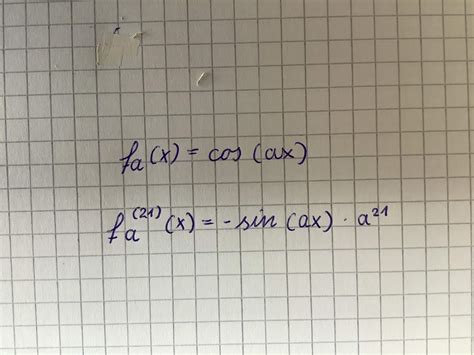 fₐ(x) = cos (ax)
fₐ⁽²¹⁾(x) = - sin (ax) · a²¹